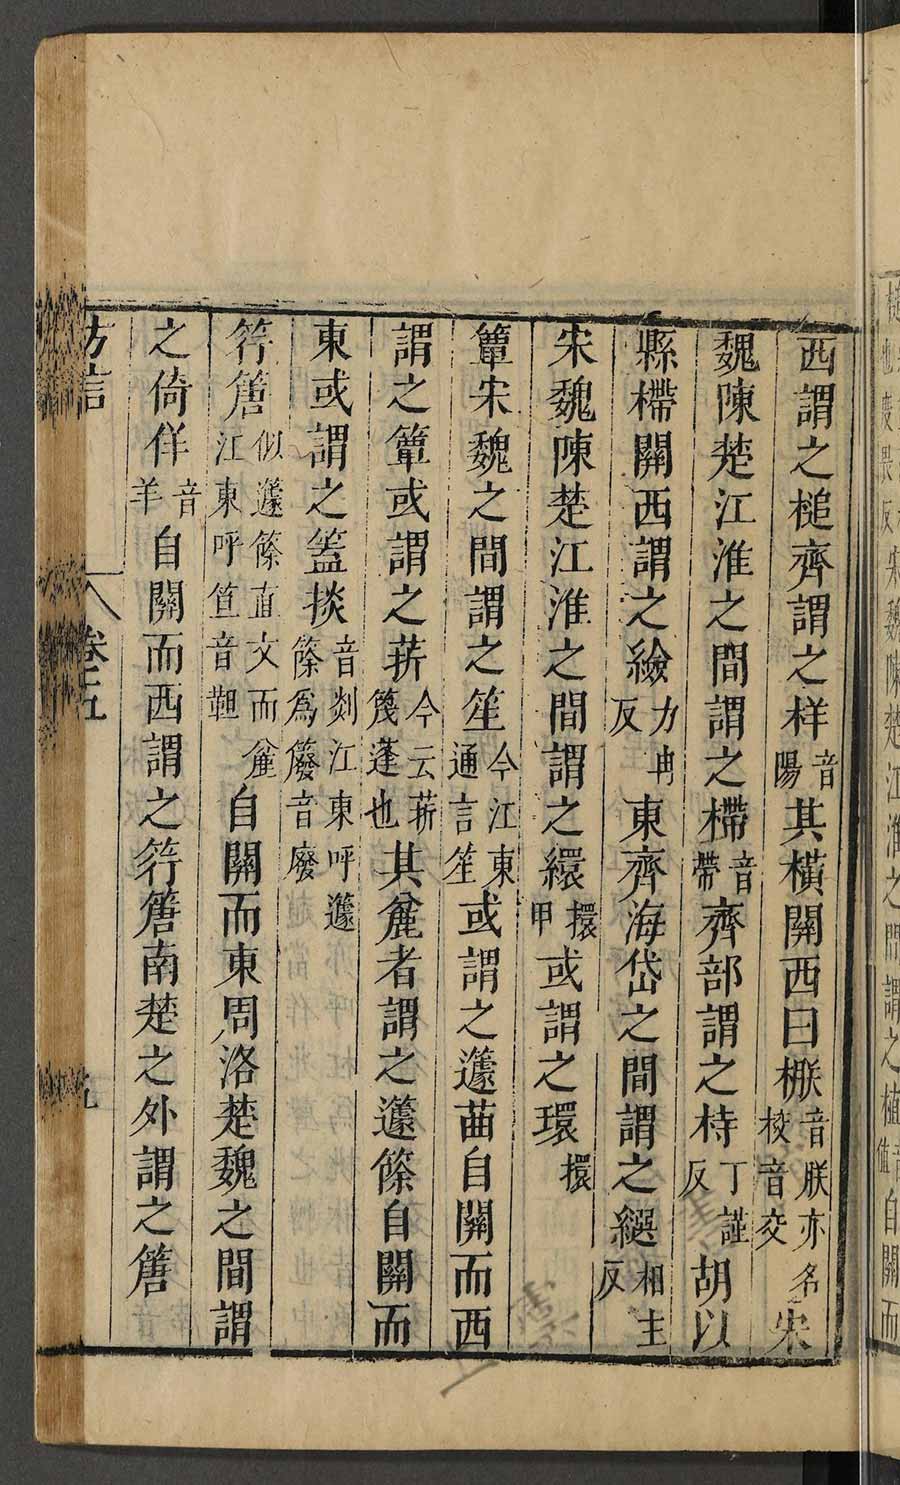 西謂之槌齊謂之样音陽其橫關西曰㮳音朕亦名校音交宋
魏陳楚江淮之間謂之㯂音帶齊部謂之持丁謹反胡以
縣㯂關西謂之𦃇力冉反東齊海岱之間謂之縼相主反
宋魏陳楚江淮之間謂之繯擐甲或謂之環擐
簟宋魏之間謂之笙今江東通言笙或謂之籧𥬔自關而西
謂之簟或謂之䓆今云䓆篾篷也其麄者謂之籧篨自關而
東或謂之䈉掞音剡江東呼籧篨爲籧音廢
筕篖似籧篨直文而麄江東呼笪音靼自關而東周洛楚魏之間謂
之倚佯音羊自關而西謂之筕篖南楚之外謂之篖
方言 卷五 九